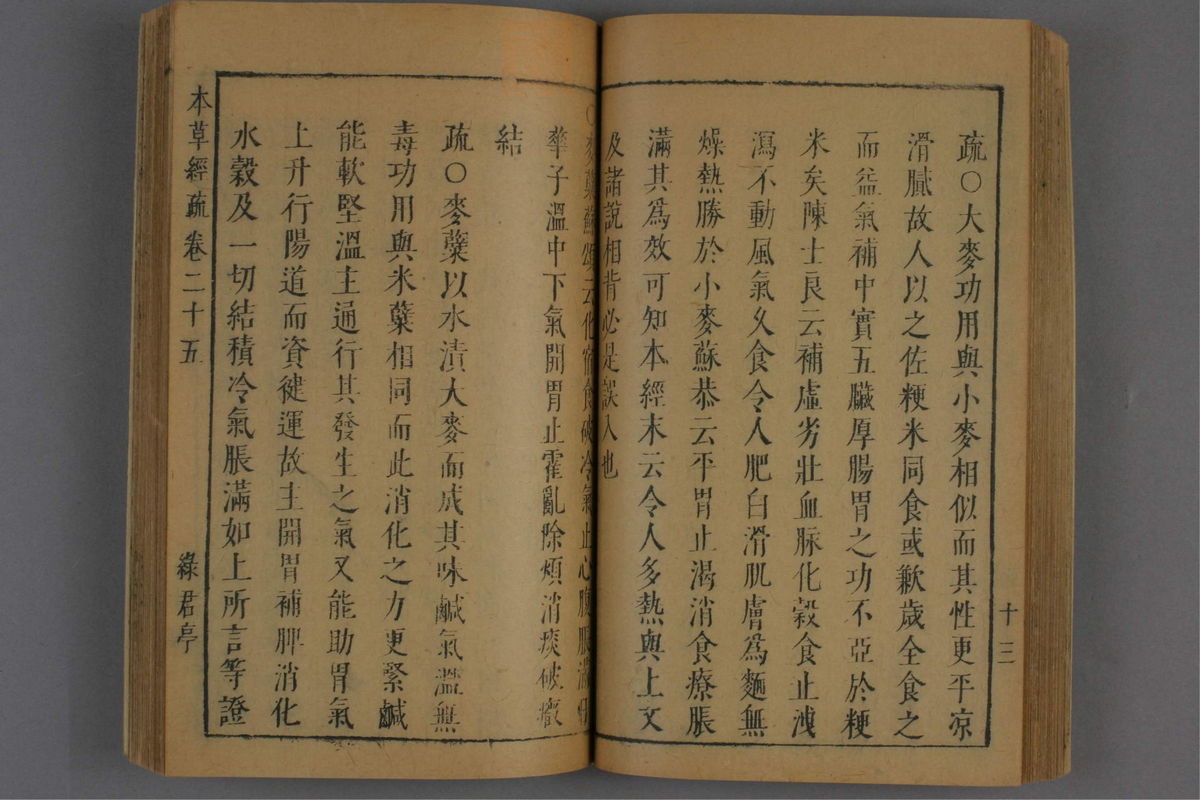 疏〇大麥功用與小麥相似而其性更平凉
滑膩故人以之佐粳米同食或歉歳全食之
而益氣補中實五臟厚腸胃之功不亞於粳
米矣陳士良云補虛劣壯血脉化穀食止洩
瀉不動風氣久食令人肥白滑肌膚爲麵無
燥熱勝於小麥蘇恭云平胃止渴消食療脹
滿其爲效可知本經末云令人多熱與上文
及諸說相背必是誤入也
十三
〇麥蘗蘇頌云化宿食破冷氣止心腹脹滿
藥子溫中下氣開胃止霍亂除煩消痰破癥
結
疏〇麥蘗以水漬大麥而成其味鹹氣溫無
毒功用與米蘗相同而此消化之力更緊鹹
能軟堅溫主通行其發生之氣又能助胃氣
上升行陽道而資健運故主開胃補脾消化
水穀及一切結積冷氣脹滿如上所言等證
本草經疏卷二十五
綠君亭